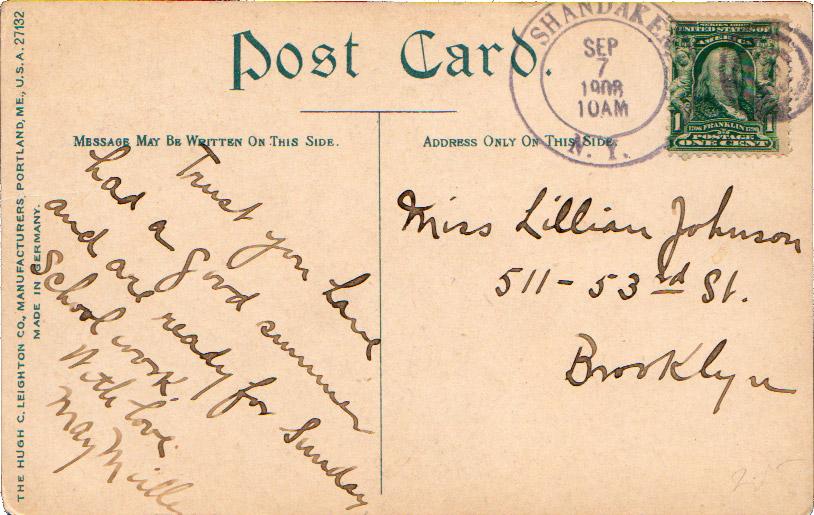 Post Card.
MESSAGE MAY BE WRITTEN ON THIS SIDE.
ADDRESS ONLY ON THIS SIDE.
THE HUGH C. LEIGHTON CO., MANUFACTURERS, PORTLAND, ME., U.S.A. 27132
MADE IN GERMANY.
SHANDAKEN
SEP
7
1908
10AM
N. Y.
SERIES 1902
UNITED STATES OF
AMERICA
1706 FRANKLIN 1790
1 POSTAGE 1
ONE CENT
Trust you have
had a good summer
and are ready for Sunday
School work.
With love.
May
Miss Lillian Johnson
511-53rd St.
Brooklyn